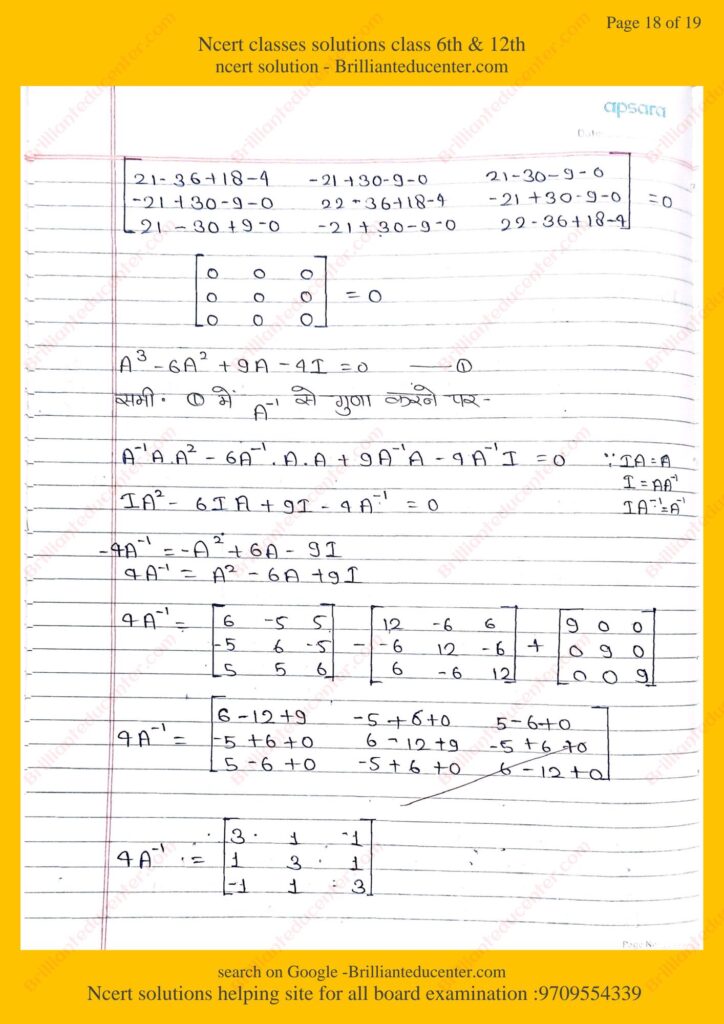 Page 18 of 19
Ncert classes solutions class 6th & 12th
ncert solution - Brillianteducenter.com
apsara
Date
21-36+18-4 -21+30-9-0 21-30-9-0
-21+30-9-0 22-36+18-4 -21+30-9-0 =0
21-30+9-0 -21+30-9-0 22-36+18-4
0 0 0
0 0 0 =0
0 0 0
A³-6A²+9A-4I=0 — ①
समी. ① में A⁻¹ से गुणा करने पर-
A⁻¹A.A²-6A⁻¹.A.A+9A⁻¹A-4A⁻¹I=0 ∵IA=A
I=AA⁻¹
IA²-6IA+9I-4A⁻¹=0 IA⁻¹=A⁻¹
-4A⁻¹=-A²+6A-9I
4A⁻¹=A²-6A+9I
4A⁻¹= 6 -5 5 12 -6 6 9 0 0
-5 6 -5 - -6 12 -6 + 0 9 0
5 5 6 6 -6 12 0 0 9
6-12+9 -5+6+0 5-6+0
4A⁻¹= -5+6+0 6-12+9 -5+6+0
5-6+0 -5+6+0 6-12+0
3 1 -1
4A⁻¹= 1 3 1
-1 1 3
search on Google -Brillianteducenter.com
Ncert solutions helping site for all board examination :9709554339